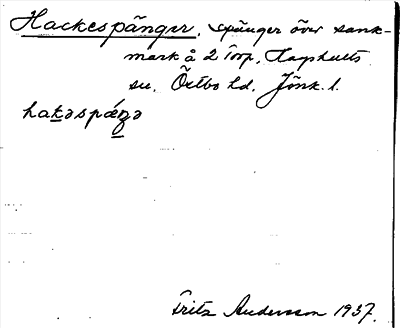 Hackespänger, spänger över sank-
mark å 2 Torp, Hagshults
sn, Östbo hd. Jönk. l.
hakəspǽŋə
Fritz Andersson 1937.